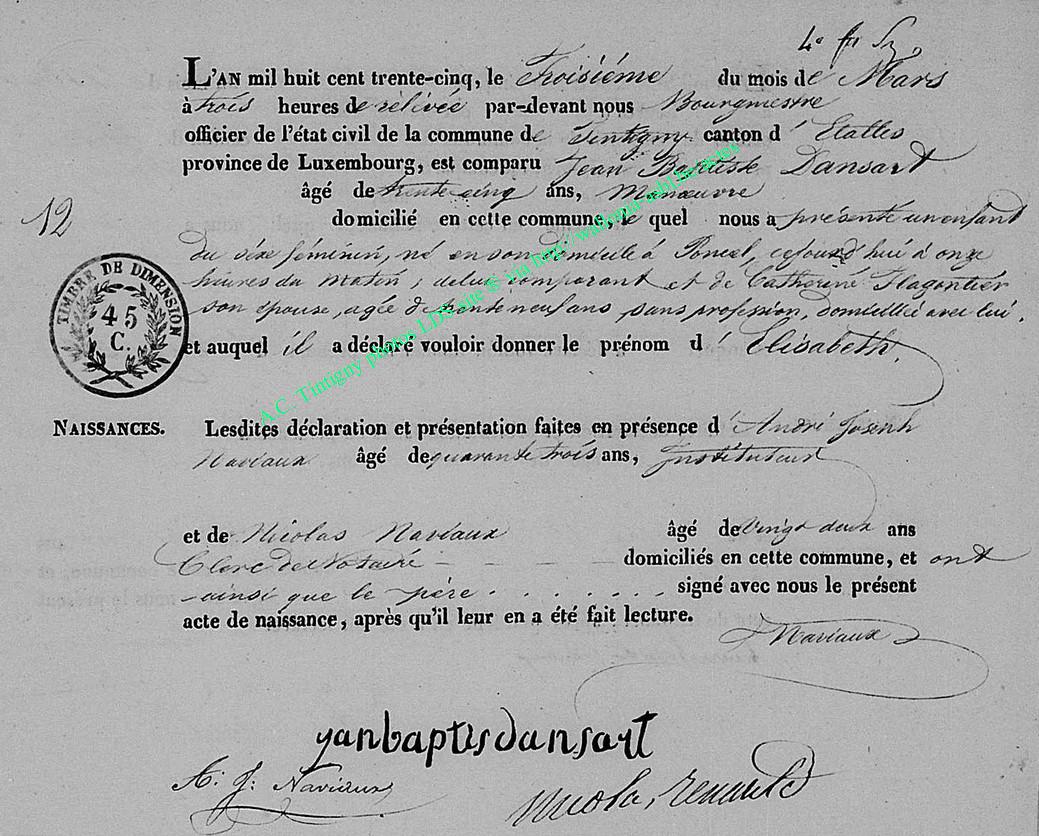 L'AN mil huit cent trente-cinq, le Troisiéme du mois de Mars
à trois heures de rélivée par-devant nous Bourgmestre
officier de l'état civil de la commune de Tintigny canton d' Etalle
province de Luxembourg, est comparu Jean Baptiste Dansart
âgé de trente cinq ans, Manœuvre
12
domicilié en cette commune, le quel nous a présenté un enfant
du séxe féminin, né en son domicile à Poncel, cejourd'hui à onze
heures du matin, de lui comparant et de Catherine
son épouse, agée de trente neuf ans sans profession, domiciliée avec lui,
et auquel il a déclaré vouloir donner le prénom d' Elisabeth.
TIMBRE DE DIMENSION
45
C.
A.C. Tintigny photos LDS site © via http://wallonia-asbl.be/actes
NAISSANCES.
Lesdites déclaration et présentation faites en présence d' André Joseph
Naviaux âgé de quarante trois ans, Instituteur
et de Nicolas Naviaux âgé de vingt deux ans
Clerc de Notaire domiciliés en cette commune, et ont
ainsi que le père signé avec nous le présent
acte de naissance, après qu'il leur en a été fait lecture.
Naviaux
yanbaptisdansart
A. J. Naviaux